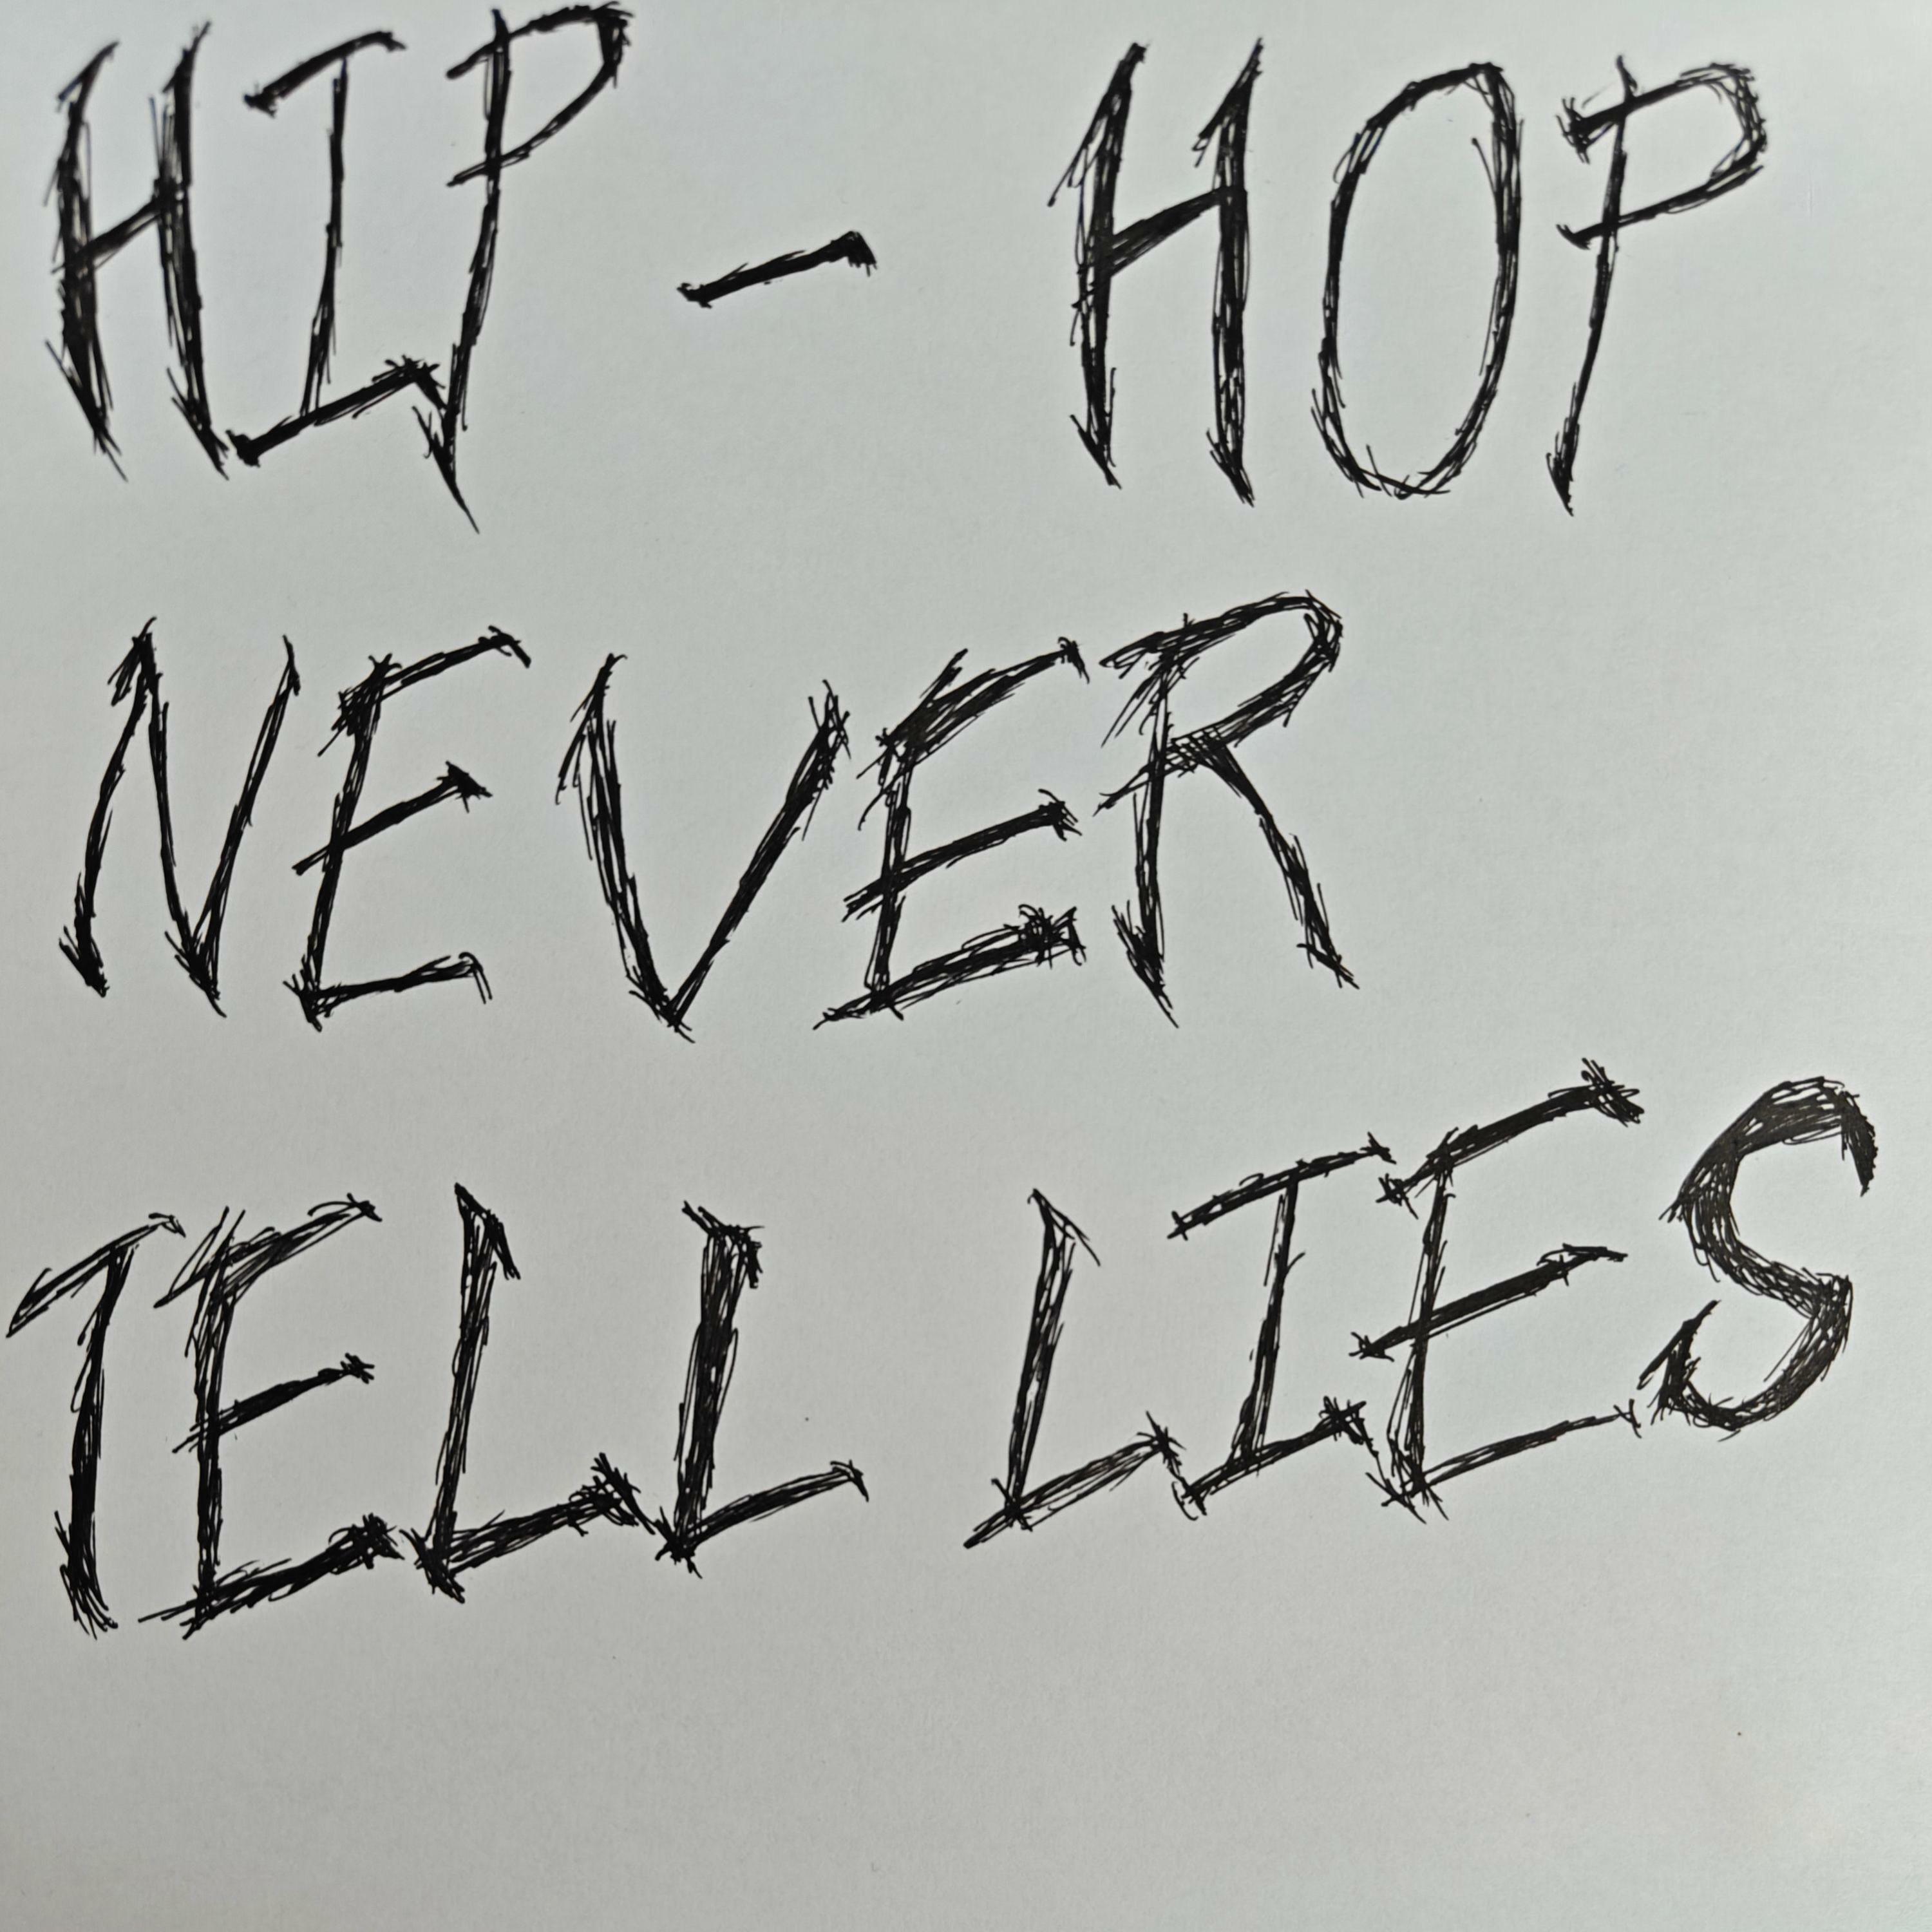 HIP - HOP
NEVER
TELL LIES